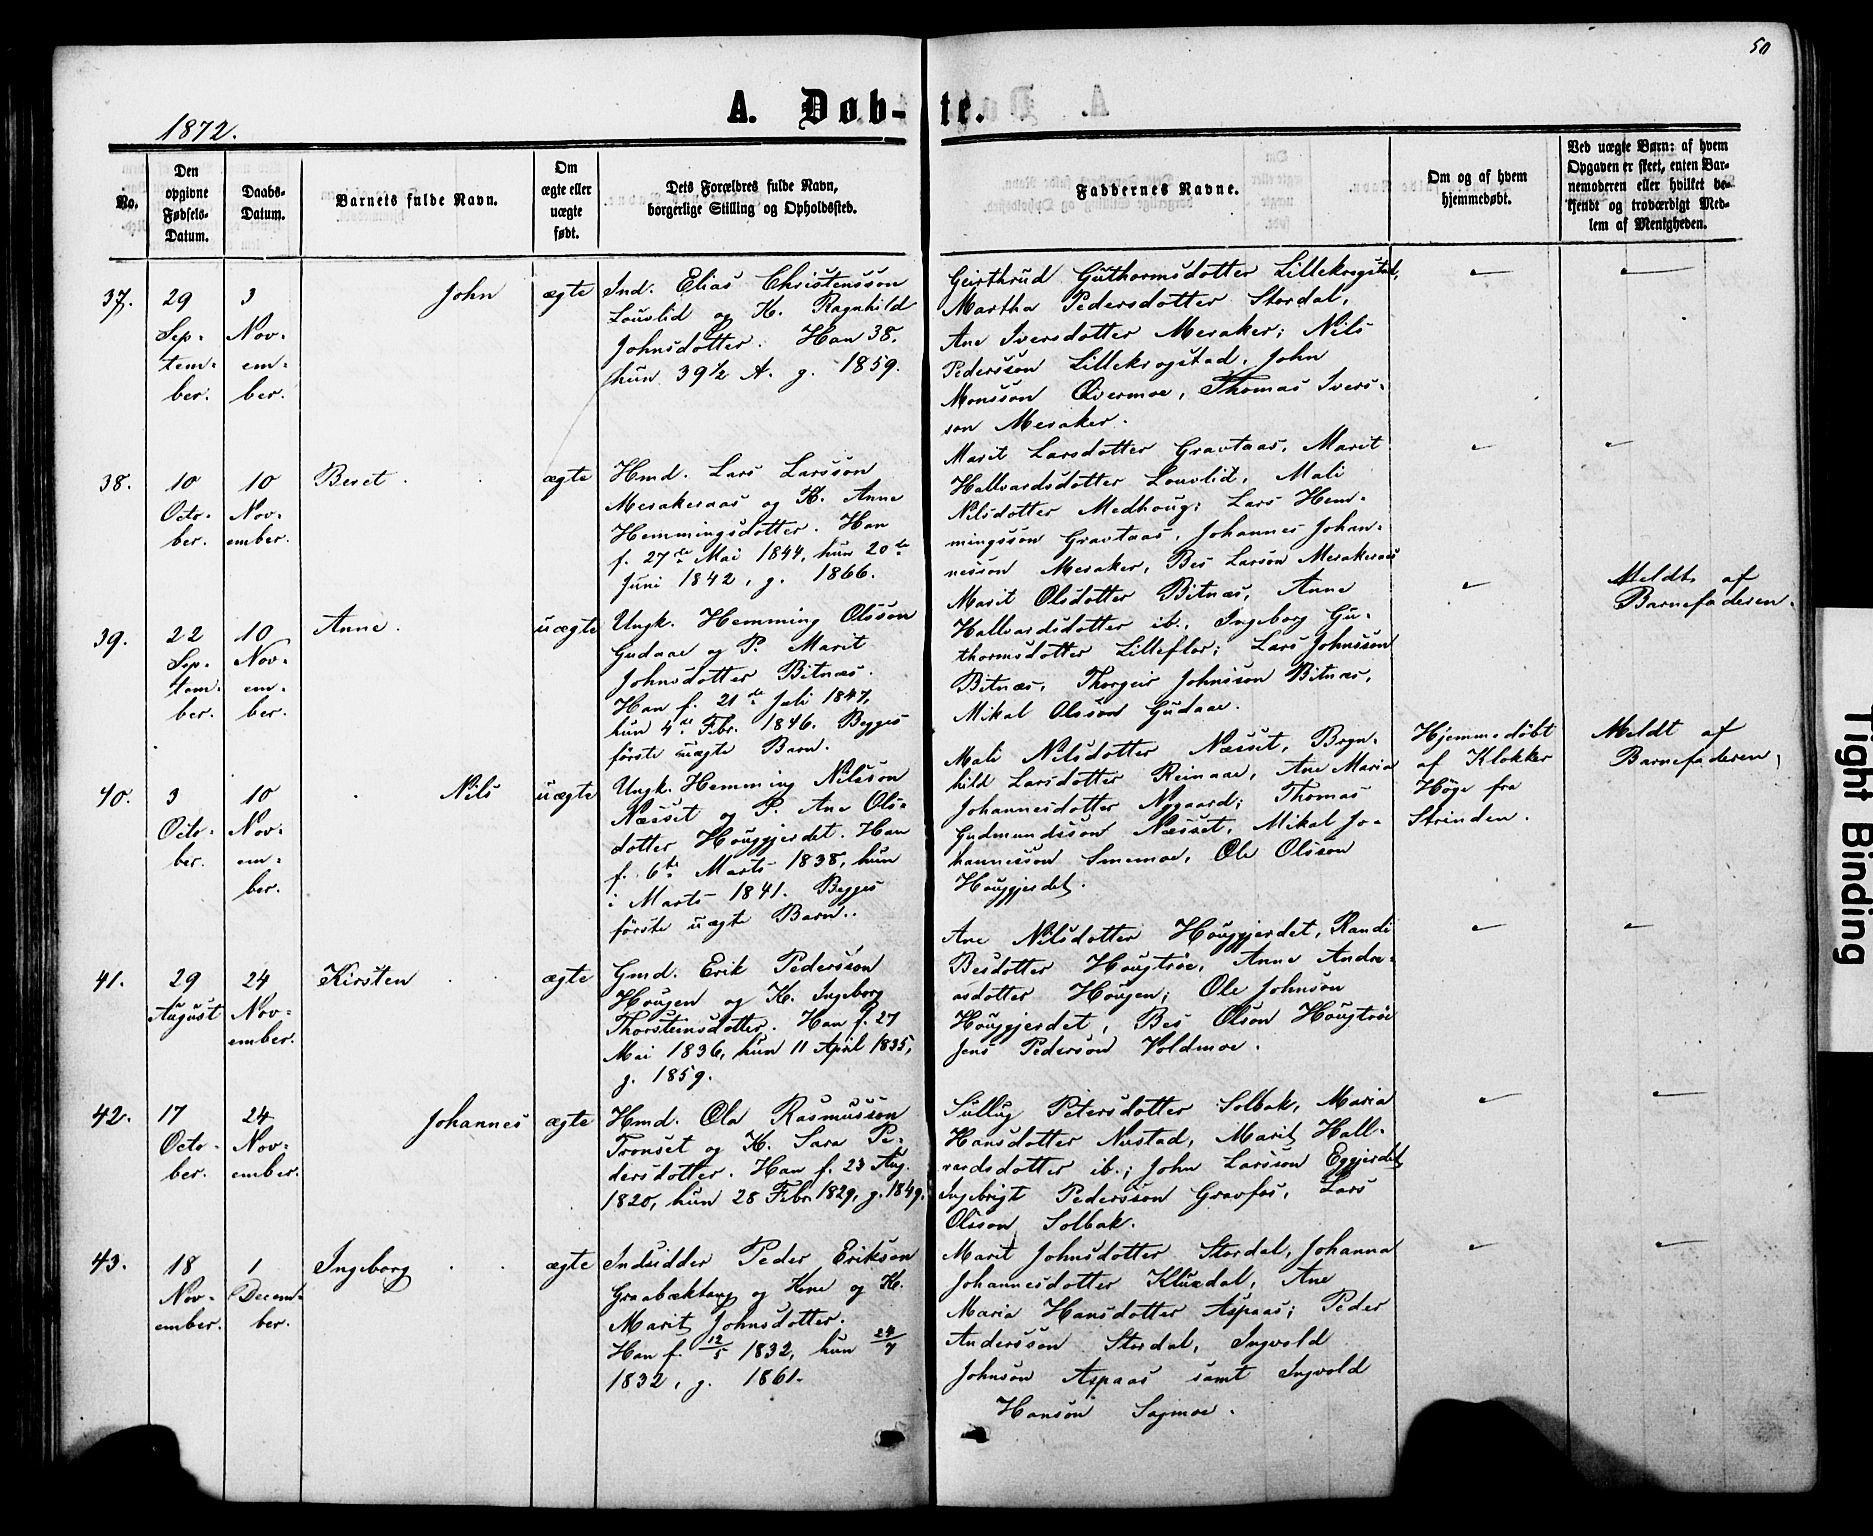 50
A. Døb-te.
1872.
No.
Den
opgivne
Fødsels-
Datum.
Daabs-
Datum.
Barnets fulde Navn.
Om
ægte eller
uægte
født.
Dets Forældres fulde Navn,
borgerlige Stilling og Opholdssted.
Faddernes Navne.
Om og af hvem
hjemmedøbt.
Ved uægte Børn: af hvem
Opgaven er skeet, enten Bar-
nemoderen eller hvilket be-
kjendt og troværdigt Med-
lem af Menigheden.
37.
29
Sep-
tem-
ber.
3
Nov-
em-
ber.
John
ægte
Ind. Elias Christensson
Louvlid og K. Ragnhild
Johnsdotter. Han 38.
hun 39½ A. g. 1859.
Geirthrud Guthormsdotter Lillekrogstad,
Martha Pedersdotter Stordal,
Ane Iversdotter Meraker; Nils
Pedersson Lillekrogstad, John
Monsson Øivermoe, Thomas Ivers-
son Meraker.
38.
10
Octo-
ber.
10
Nov-
ember.
Beret
ægte
Hmd. Lars Larsson
Merakeraas og K. Anne
Hemmingsdotter. Han
f. 27de Mai 1844, hun 20de
Juni 1842, g. 1866.
Marit Larsdotter Gravtaas, Marit
Hallvardsdotter Louvlid, Mali
Nilsdotter Medhoug; Lars Hem-
mingsson Gravtaas, Johannes Johan-
nesson Meraker, Bes Larson Merakeraas
39.
22
Sep-
tem-
ber.
10
Nov-
em-
ber.
Anne.
uægte
Ungk. Hemming Olsson
Gudaae og P. Marit
Johnsdotter Bitnæs.
Han f. 21de Juli 1847,
hun 4de Febr. 1846. Begges
første uægte Barn.
Marit Olsdotter Bitnæs, Anne
Hallvardsdotter ib., Ingeborg Gu-
thormsdotter Lilleflor; Lars Johnsson
Bitnæs, Thorgeir Johnsson Bitnæs,
Mikal Olsson Gudaae.
Meldt af
Barnefaderen.
40.
3
Octo-
ber.
10
Nov-
em-
ber.
Nils
uægte
Ungk. Hemming Nilsson
Næsset og P. Ane Ols-
dotter Houggjerdet. Han
f. 6te Marts 1838, hun
i Marts 1841. Begges
første uægte Barn.
Mali Nilsdotter Næsset, Bryn-
hild Larsdotter Reinaae, Ane Maria
Johannesdotter Nygaard; Thomas
Gudmundsson Næsset, Mikal Jo-
hannesson Smemoe, Ole Olsson
Houggjerdet.
Hjemmedøbt
af Klokker
Høge fra
Strinden.
Meldt af
Barnefaderen,
41.
29
August
24
Nov-
ember.
Kirsten
ægte
Gmd. Erik Pedersson
Hougen og K. Ingeborg
Thorsteinsdotter. Han f. 27
Mai 1836, hun 11 April 1835,
g. 1859.
Ane Nilsdotter Houggjerdet, Randi
Besdotter Hougtrøe, Anne Andre-
asdotter Hougen; Ole Johnson
Houggjerdet, Bes Olson Hougtrøe
Jens Pederson Voldmoe.
42.
17
Octo-
ber.
24
Nov-
ember.
Johannes
ægte
Hmd. Ola Rasmusson
Tronset og K. Sara Pe-
dersdotter. Han f. 23 Aug.
1820, hun 28 Febr. 1829, g. 1849.
Sullug Petersdotter Solbak, Maria
Hansdotter Nustad, Marit Hall-
vardsdotter ib.; John Larsson Eggjerdet
Ingebrigt Pedersson Gravfos, Lars
Olsson Solbak.
43.
18
Nov-
ember.
1
Decem-
ber.
Ingeborg
ægte
Indsidder Peder Erikson
Graabæktrøe og Kone og K.
Marit Johnsdotter.
Han f. 12/5 1832, hun 24/7
1832, g. 1861.
Marit Johnsdotter Stordal, Johanna
Johannesdotter Kluxdal, Ane
Maria Hansdotter Aspaas; Peder
Andersson Stordal, Ingvold
Johnson Aspaas samt Ingvold
Hanson Sagmoe.
Tight Binding